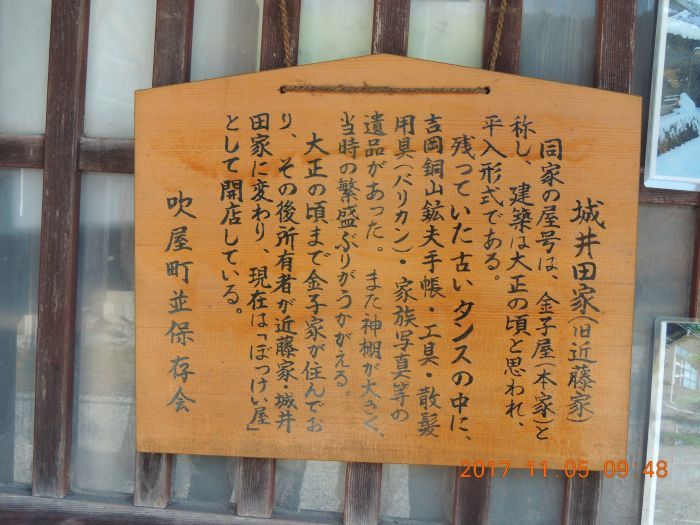 城井田家(旧近藤家)
同家の屋号は、金子屋(本家)と
称し、建築は大正の頃と思われ、
平入形式である。
残っていた古いタンスの中に、
吉岡銅山鉱夫手帳・工具・散髪
用具(バリカン)・家族写真等の
遺品があった。また神棚が大きく、
当時の繁盛ぶりがうかがえる。
大正の頃まで金子家が住んでお
り、その後所有者が近藤家・城井
田家に変わり、現在は「ぼっけい屋」
として開店している。
吹屋町並保存会
2017.11.05 09:48